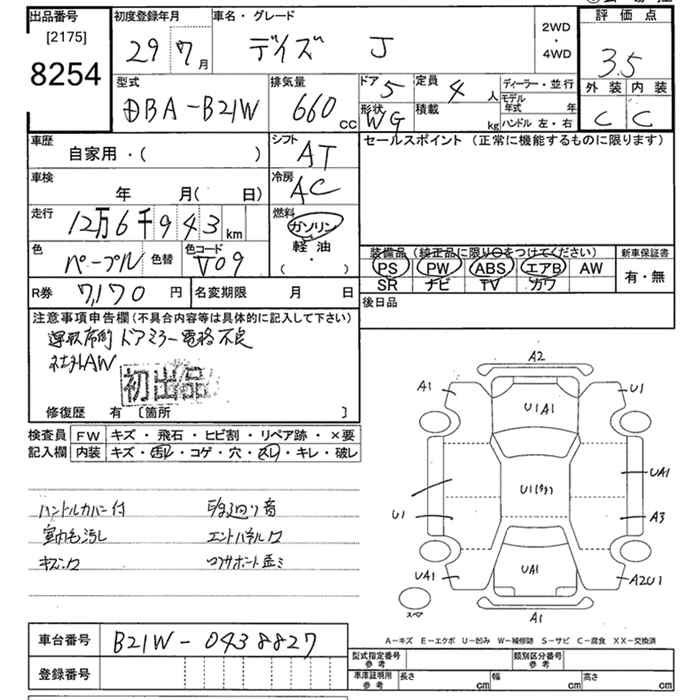 出品番号
[2175]
8254
初度登録年月
29年7月
車名・グレード
デイズ J
2WD
・
4WD
評価点
3.5
外装 内装
C C
型式
DBA-B21W
排気量
660 cc
ドア 5
定員 4 人
形状 WG
積載 kg
ディーラー・並行
モデル年式 年
ハンドル 左・右
車歴
自家用・( )
シフト
AT
セールスポイント (正常に機能するものに限ります)
車検
年 月( 日)
冷房
AC
走行
12万6千943km
燃料
ガソリン
軽油
( ・ )
色
パープル
色替
色コード
V09
装備品 (純正品に限り○をつけてください)
PS PW ABS エアB AW
SR ナビ TV カワ
新車保証書
有・無
R券
7,170円
名変期限 月 日
後日品
注意事項申告欄(不具合内容等は具体的に記入して下さい)
運転席側ドアミラー電格不良
社外AW
初出品
修復歴 有 〔箇所 〕
検査員記入欄
FW キズ・飛石・ヒビ割・リペア跡・×要
内装 キズ・汚レ・コゲ・穴・スレ・キレ・破レ
ハンドルカバー付
室内毛汚し
キズ、凹
足廻り音
エンドパネル凹
コアサポート歪ミ
A2
A1
U1
U1A1
U1
UA1
U1
A3
UA1
UA1
A2U1
A1
スペア
A-キズ E-エクボ U-凹み W-補修跡 S-サビ C-腐食 XX-交換済
車台番号
B21W-0438827
登録番号
型式指定番号
参考
類別区分番号
参考
車庫証明用
参考
長さ cm
幅 cm
高さ cm